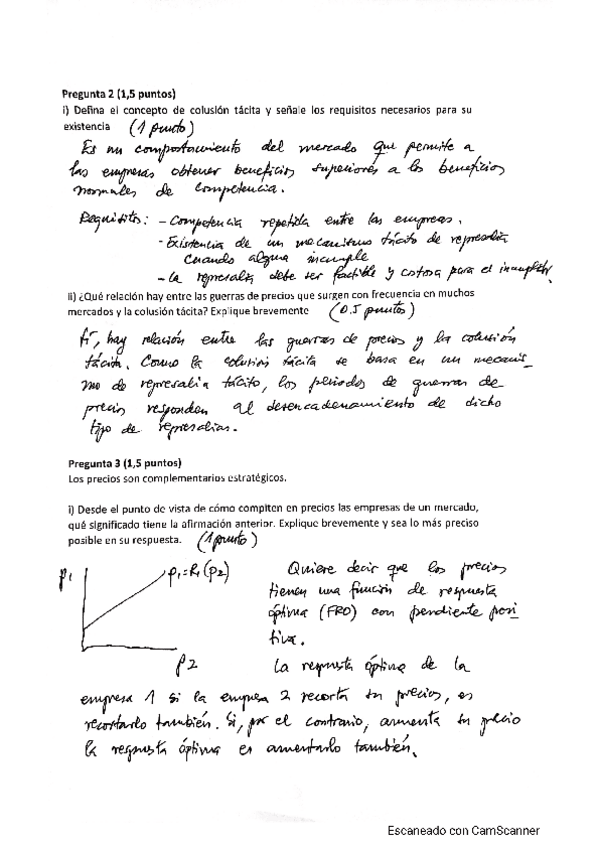 Pregunta 2 (1,5 puntos)
i) Defina el concepto de colusión tácita y señale los requisitos necesarios para su
existencia (1 punto)
Es un comportamiento del mercado que permite a
las empresas obtener beneficios superiores a los beneficios
normales de competencia.
Requisitos: - Competencia repetida entre las empresas.
- Existencia de un mecanismo tácito de represalia
cuando alguna incumple
- La represalia debe ser factible y costosa para el
ii) ¿Qué relación hay entre las guerras de precios que surgen con frecuencia en muchos
mercados y la colusión tácita? Explique brevemente (0.5 puntos)
Sí, hay relación entre las guerras de precios y la colusión
tácita. Como la colusión tácita se basa en un mecanis_
mo de represalia tácito, los periodos de guerras de
precios responden al desencadenamiento de dicho
tipo de represalias.
Pregunta 3 (1,5 puntos)
Los precios son complementarios estratégicos.
i) Desde el punto de vista de cómo compiten en precios las empresas de un mercado,
qué significado tiene la afirmación anterior. Explique brevemente y sea lo más preciso
posible en su respuesta. (1 punto)
P1
P1=R1(P2)
P2
Quiere decir que los precios
tienen una función de respuesta
óptima (FRO) con pendiente posi_
tiva.
La respuesta óptima de la
empresa 1 si la empresa 2 recorta su precios, es
recortarlo también. Si, por el contrario, aumenta su precio
la respuesta óptima es aumentarlo también.
Escaneado con CamScanner